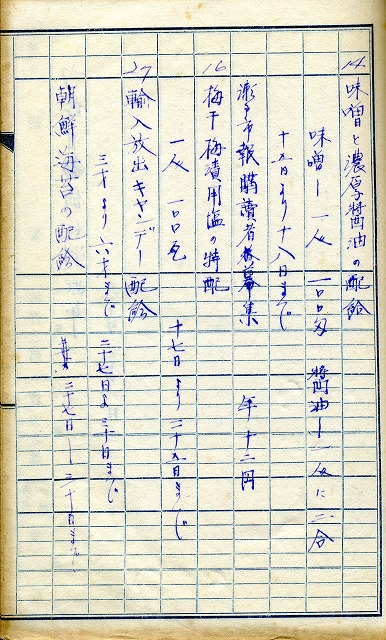 14 味噌と濃厚醬油の配給
味噌ー一人 一〇〇匁 醬油ー一人に二合
十五日より十八日まで
瀬戸市報購讀者募集 年十二円
16 梅干梅漬用塩の特配
一人 一〇〇匁 十七日より二十五日まで
27 輸入放出キャンデー配給
三才より六才まで 二十七日より三十日まで
朝鮮海苔の配給 二十七日ー三十日まで